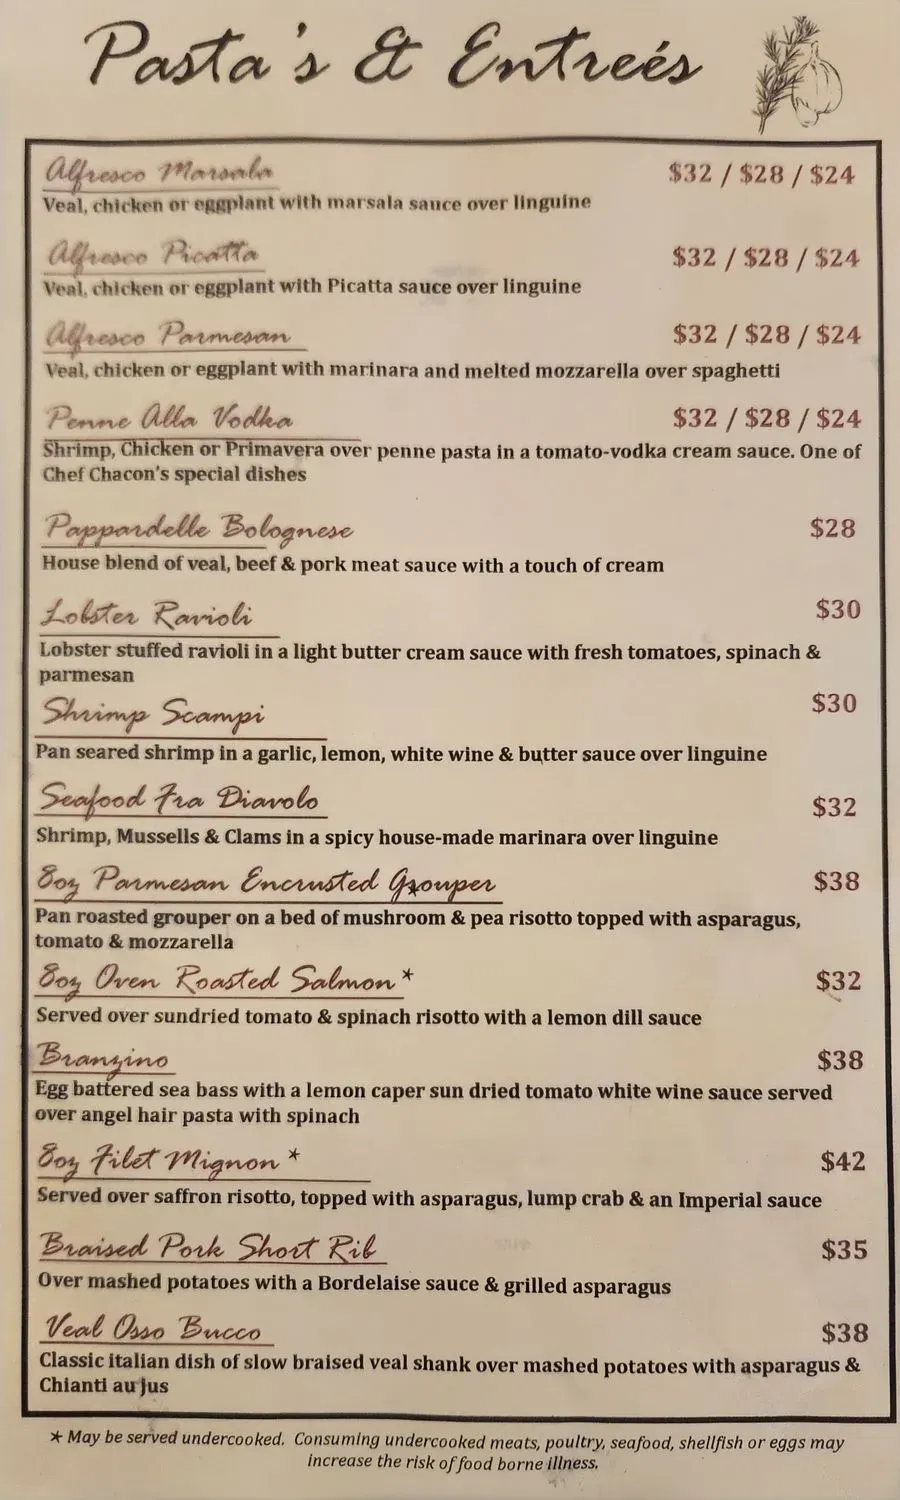 Pasta's & Entreés
Alfresco Marsala $32 / $28 / $24
Veal, chicken or eggplant with marsala sauce over linguine
Alfresco Picatta $32 / $28 / $24
Veal, chicken or eggplant with Picatta sauce over linguine
Alfresco Parmesan $32 / $28 / $24
Veal, chicken or eggplant with marinara and melted mozzarella over spaghetti
Penne Alla Vodka $32 / $28 / $24
Shrimp, Chicken or Primavera over penne pasta in a tomato-vodka cream sauce. One of
Chef Chacon's special dishes
Pappardelle Bolognese $28
House blend of veal, beef & pork meat sauce with a touch of cream
Lobster Ravioli $30
Lobster stuffed ravioli in a light butter cream sauce with fresh tomatoes, spinach &
parmesan
Shrimp Scampi $30
Pan seared shrimp in a garlic, lemon, white wine & butter sauce over linguine
Seafood Fra Diavolo $32
Shrimp, Mussells & Clams in a spicy house-made marinara over linguine
8oz Parmesan Encrusted Grouper $38
Pan roasted grouper on a bed of mushroom & pea risotto topped with asparagus,
tomato & mozzarella
8oz Oven Roasted Salmon* $32
Served over sundried tomato & spinach risotto with a lemon dill sauce
Branzino $38
Egg battered sea bass with a lemon caper sun dried tomato white wine sauce served
over angel hair pasta with spinach
8oz Filet Mignon * $42
Served over saffron risotto, topped with asparagus, lump crab & an Imperial sauce
Braised Pork Short Rib $35
Over mashed potatoes with a Bordelaise sauce & grilled asparagus
Veal Osso Bucco $38
Classic italian dish of slow braised veal shank over mashed potatoes with asparagus &
Chianti au jus
* May be served undercooked. Consuming undercooked meats, poultry, seafood, shellfish or eggs may
increase the risk of food borne illness.